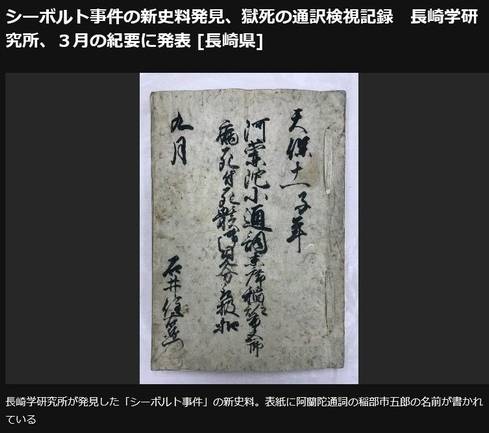 シーボルト事件の新史料発見、獄死の通訳検視記録　長崎学研
究所、３月の紀要に発表 [長崎県]
天保十一子年
阿蘭陀小通詞末席稲部市五郎
病死付死骸御見分
九月
長崎学研究所が発見した「シーボルト事件」の新史料。表紙に阿蘭陀通詞の稲部市五郎の名前が書かれ
ている